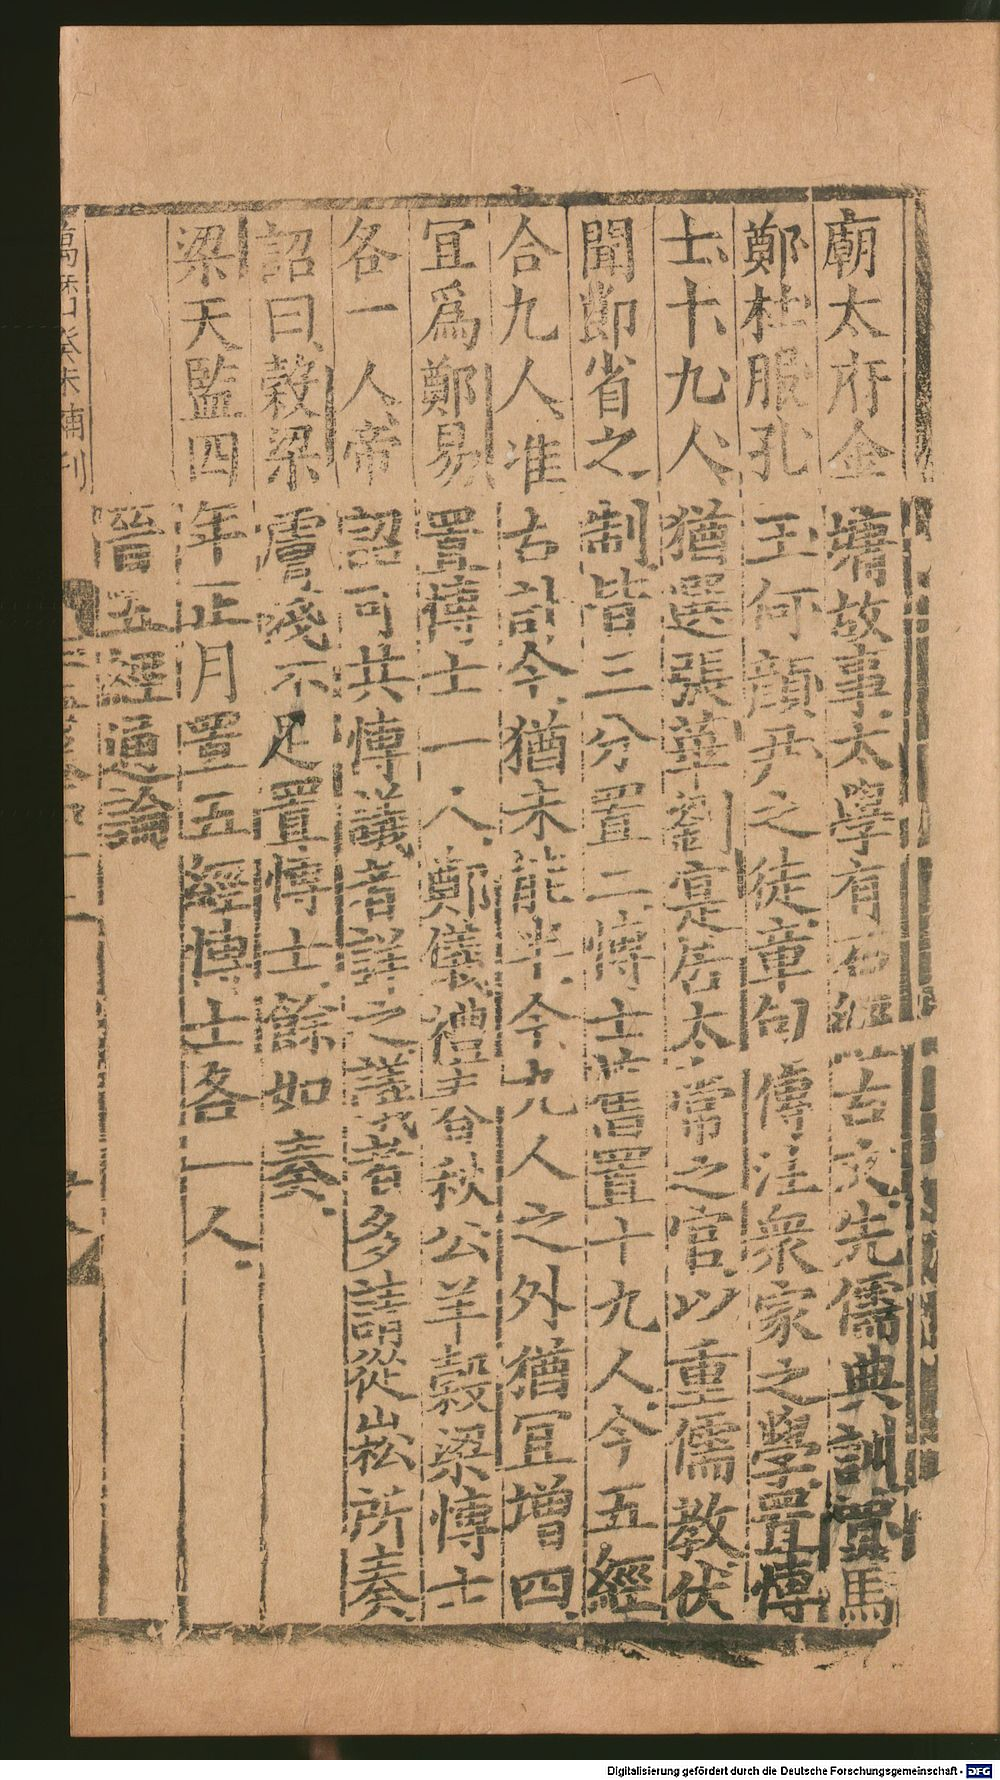 廟太府金墉故事太學有石經古文先儒典訓置馬
鄭杜服孔王何顏尹之徒章句傳注衆家之學置博
士十九人猶選張華劉寔居太常之官以重儒教伏
聞節省之制皆三分置二博士舊置十九人今五經
合九人准古計今猶未能半今九人之外猶冝增四
冝爲鄭易置博士一人鄭儀禮春秋公羊穀梁博士
各一人帝詔可共博議者詳之議者多請從崧所奏
詔曰穀梁膚淺不足置博士餘如奏
梁天監四年正月置五經博士各一人
晉五經通論
萬曆癸未補刊
Digitalisierung gefördert durch die Deutsche Forschungsgemeinschaft - DFG